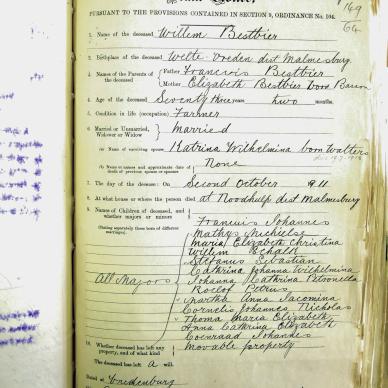 PURSUANT TO THE PROVISIONS CONTAINED IN SECTION 9, ORDINANCE No. 104.
169
1. Name of the deceased Willem Bestbier
2. Birthplace of the deceased Welte Vreden dist Malmesbury
3. Names of the Parents of the deceased
Father Francois Bestbier
Mother Elizabeth Bestbier born
4. Age of the deceased Seventy three years two months.
5. Condition in life (occupation) Farmer
6. Married or Unmarried, Widower or Widow Married
(a) Name of surviving spouse Katrina Wilhelmina born Walters
(b) Name and approximate date of death of previous spouse or spouses None
7. The day of the decease: On Second October 911
8. At what house or where the person died at Noodhulp dist Malmesbury
9. Names of Children of deceased, and whether majors or minors
(Stating separately those born of different marriages).
All Majors
Francois Johannes
Mathys Michielse
Maria Elizabeth Christina
Willem
Stefanus Sebastian
Cathrina Johanna Wilhelmina
Johanna Catrina Petronella
Roelof Petrus
Martha Anna Jacomina
Cornelis Johannes Nicholas
Thoma Maria Elizabeth
Anna Cathrina Elizabeth
Coenraad Johannes
10. Whether deceased has left any property, and of what kind Movable property
The deceased has left a will.
Dated at Vredenburg